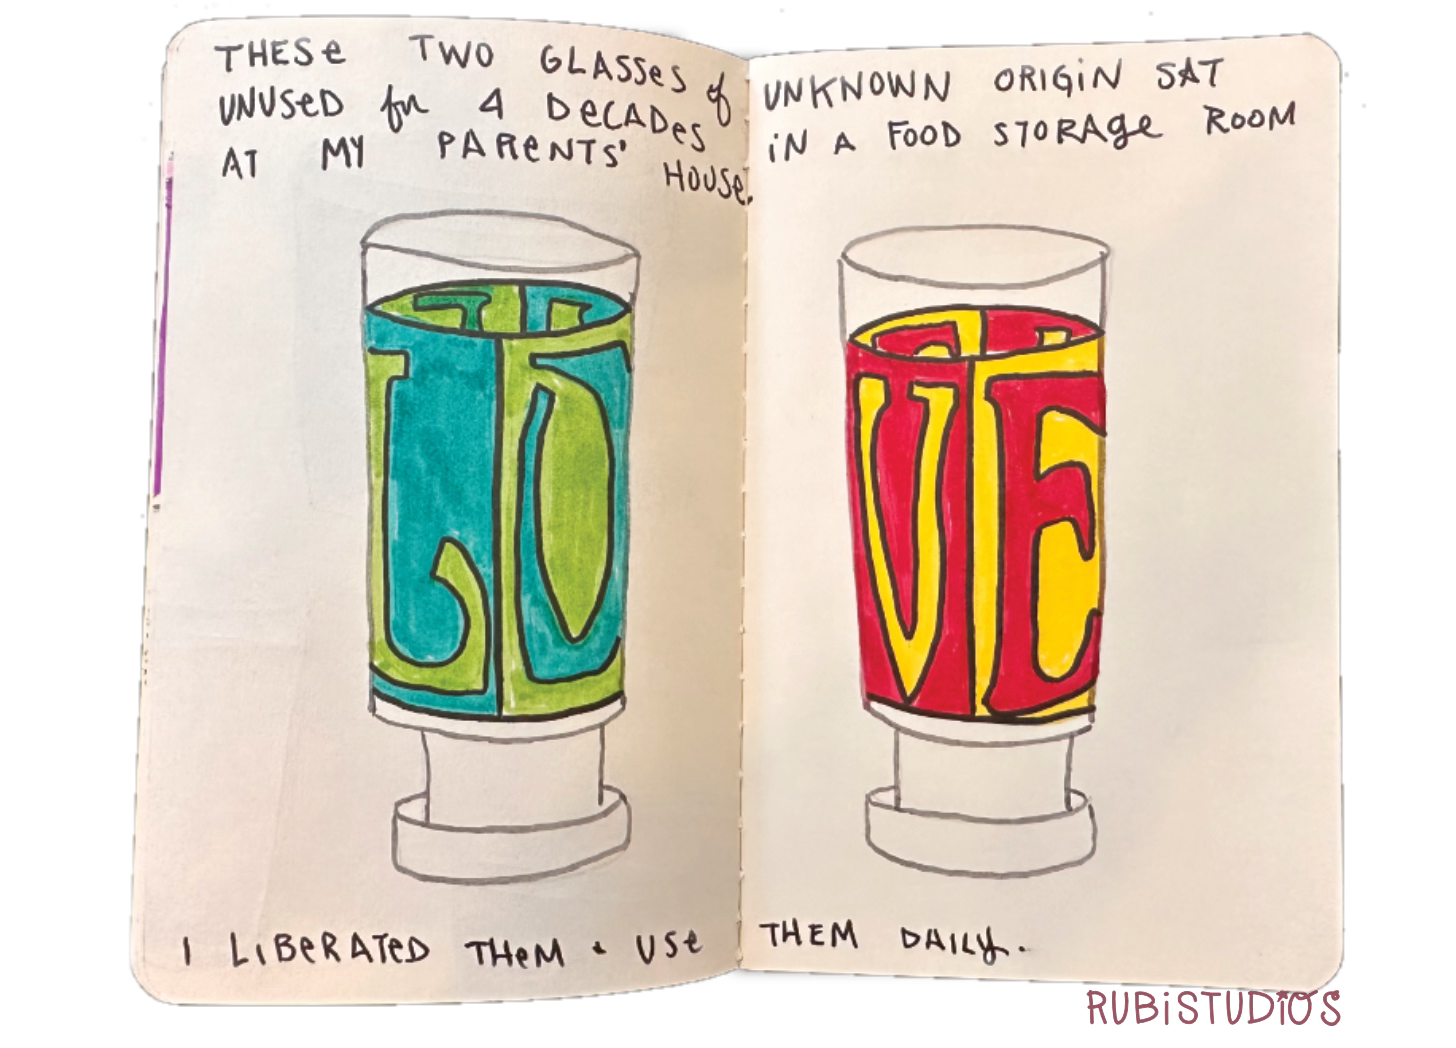 THESE TWO GLASSES of UNKNOWN ORIGIN SAT
UNUSED for 4 DECADES IN A FOOD STORAGE ROOM
AT MY PARENTS' HOUSE.
LO
VE
I LIBERATED THEM + USE THEM DAILY.
RUBISTUDIOS